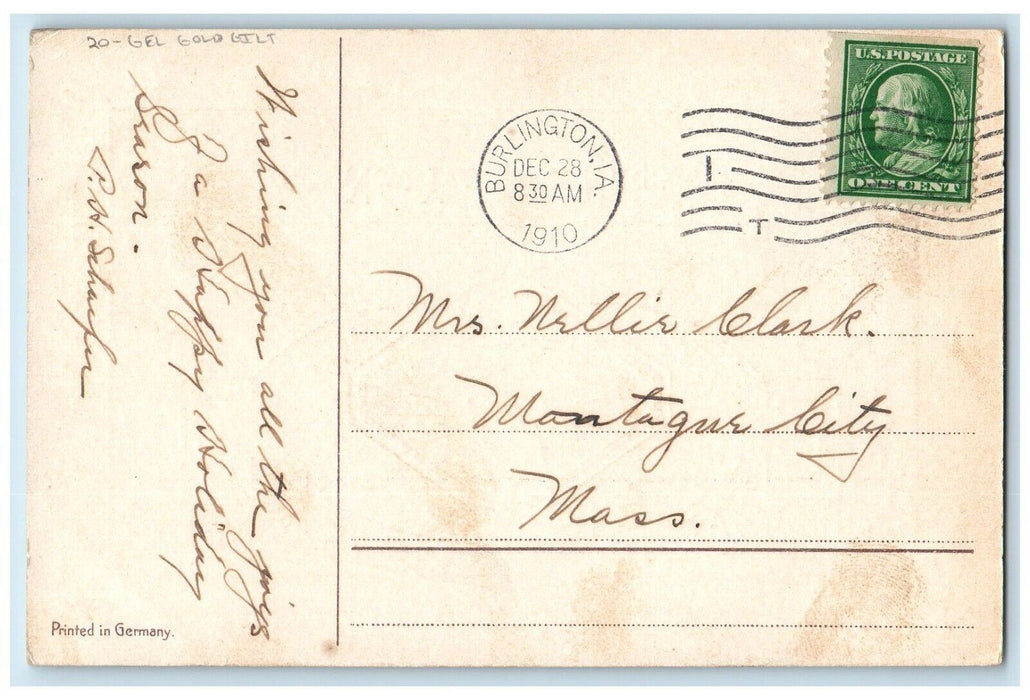 20-GEL GOLD GILT
Wishing you all the joys
of a Happy Holiday
Season.
P. H. Schaefer
Printed in Germany.
BURLINGTON, IA.
DEC 28
8 30 AM
1910
I
T
U.S. POSTAGE
ONE CENT
Mrs. Nellie Clark.
Montague City
Mass.